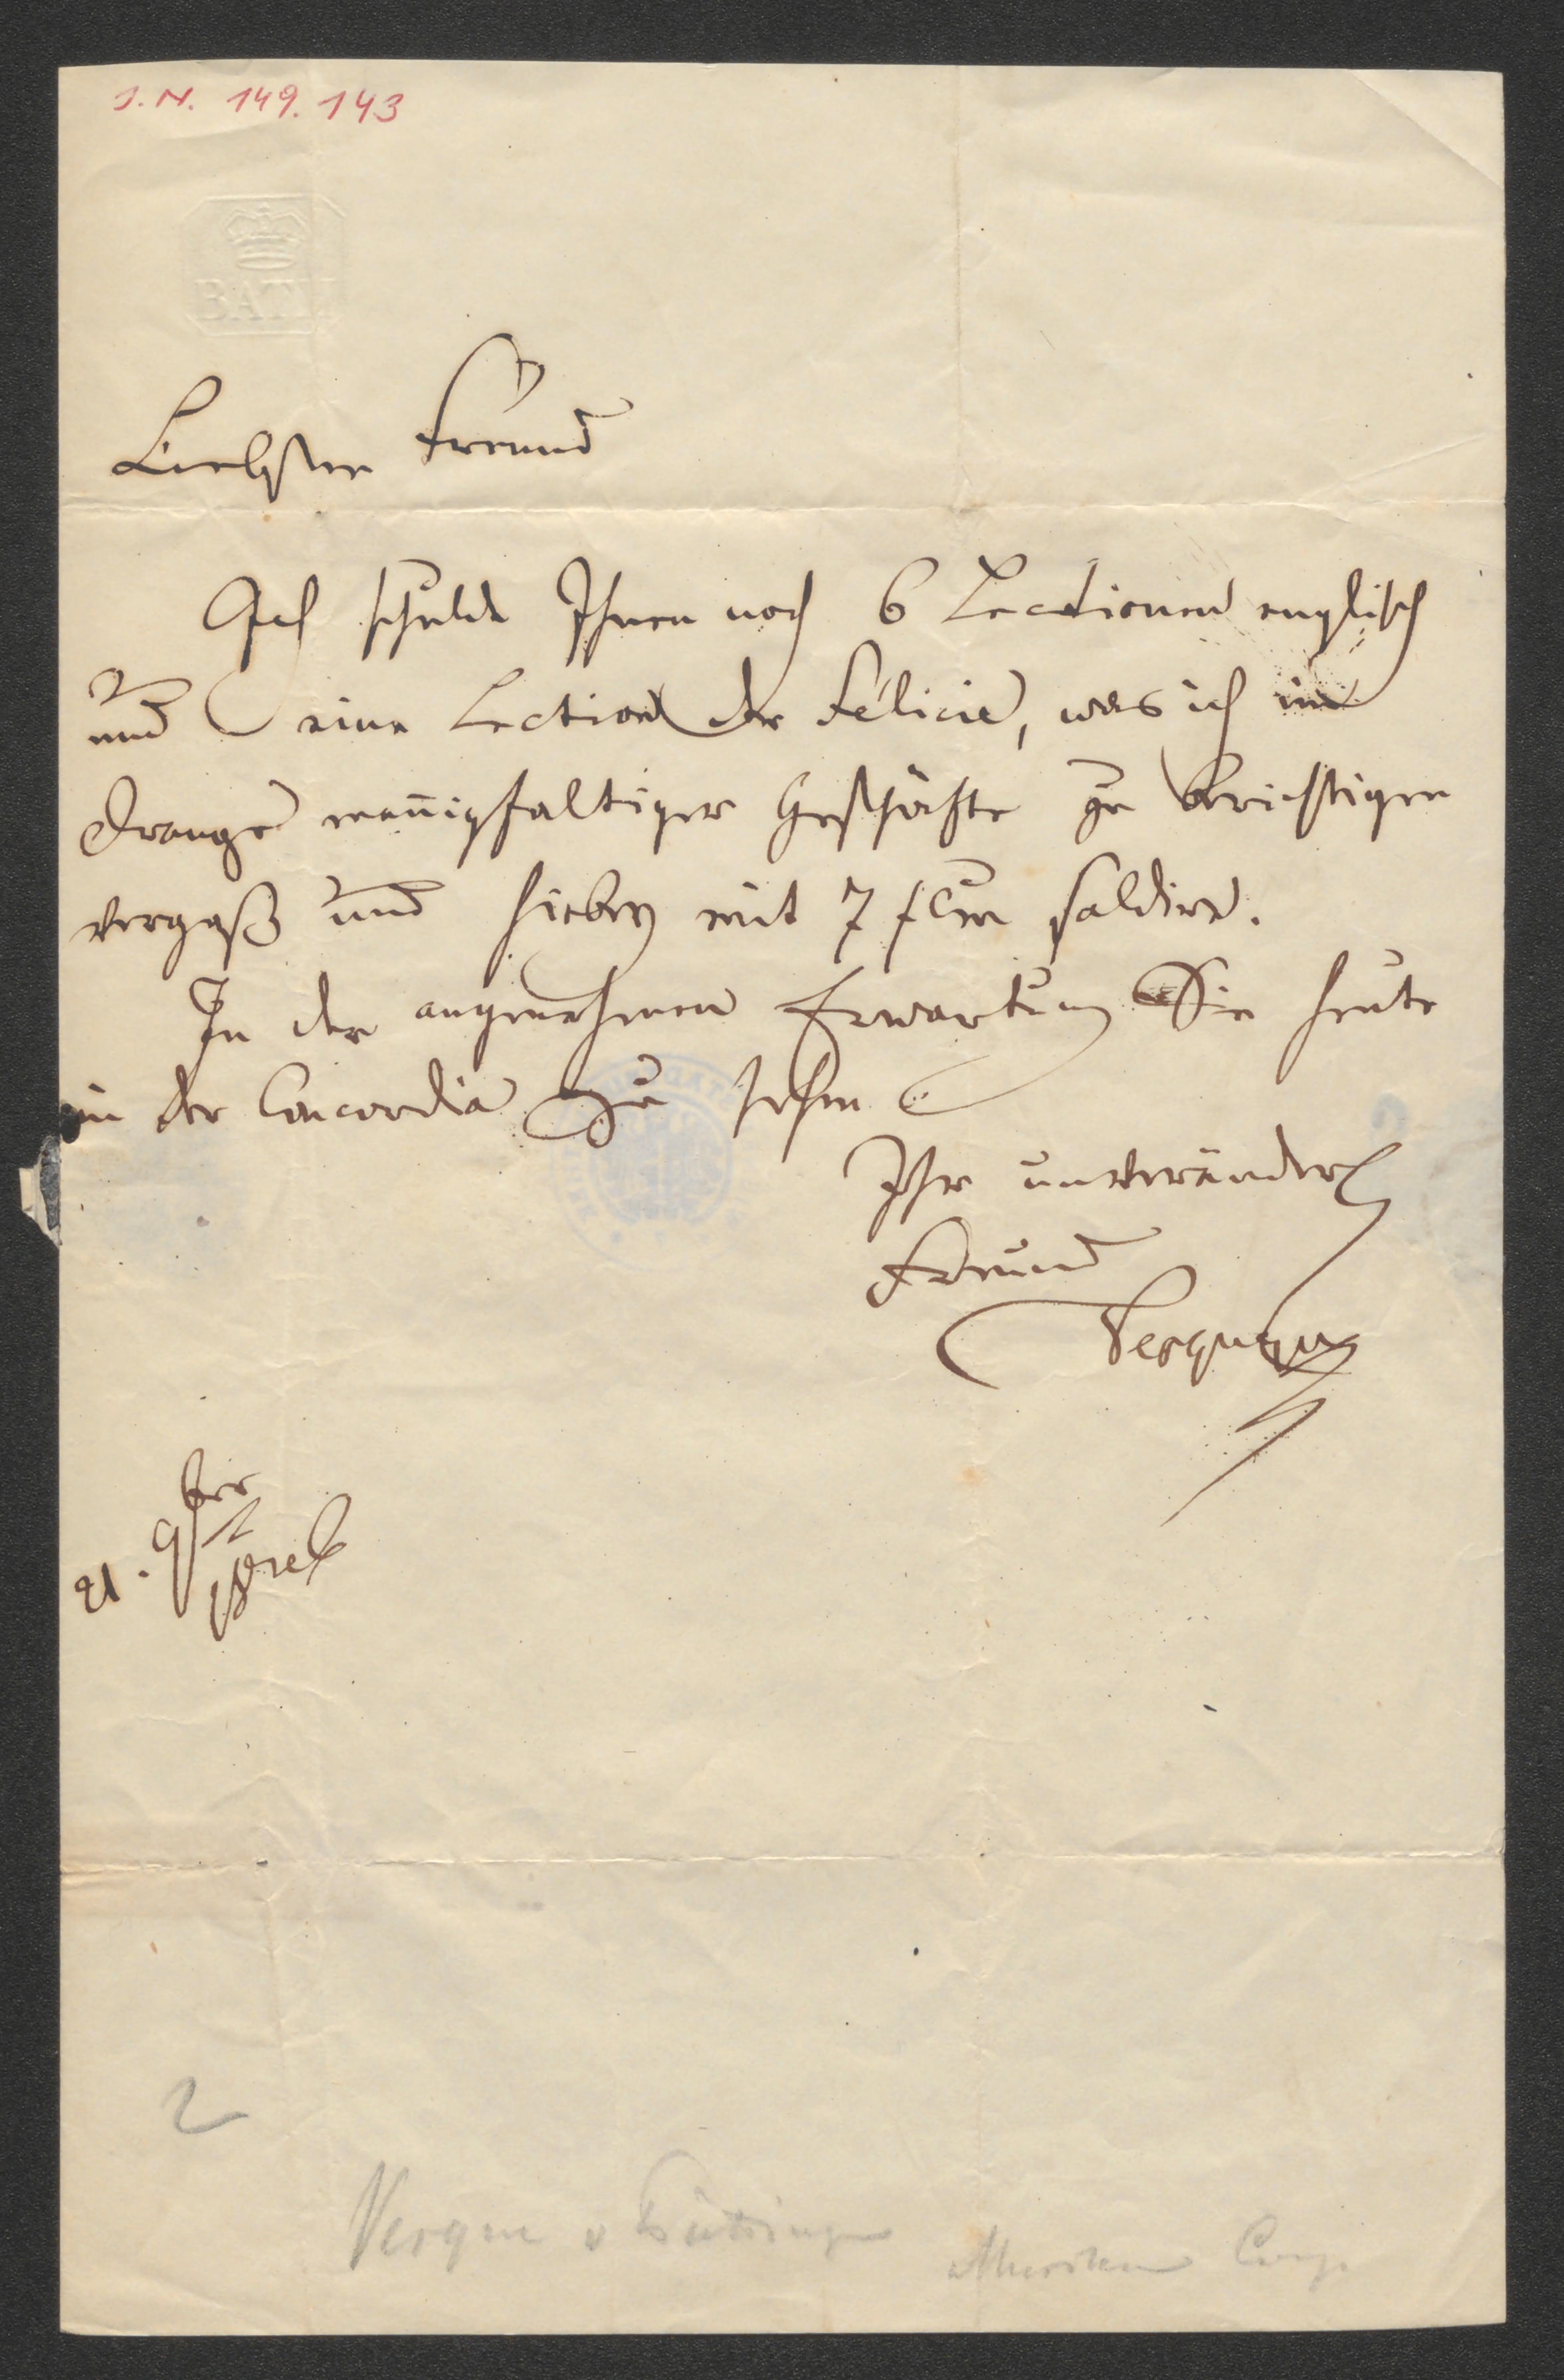 I. N. 149.143
BATH
Liebster Freund
Ich schulde Ihnen noch 6 Lectionen englisch
und eine Lection der Félicie, was ich im
Drange mañigfaltiger Geschäfte zu berichtigen
vergaß und hiebey mit 7 f CM saldire.
In der angenehmen Erwartung Sie heute
in der Concordia zu sehen
Ihr unveränderl
Freund
Vesque
21. 9ber
2
Vesque v Püttlingen